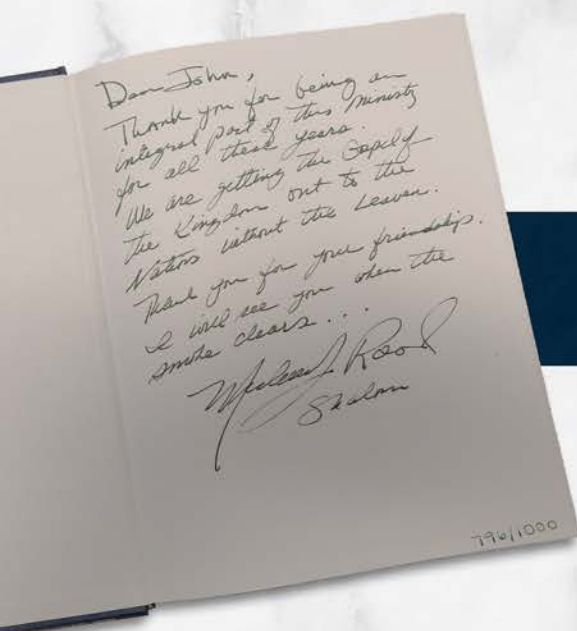 Dear John,
Thank you for being an
integral part of this ministry
for all these years.
We are getting the Gospel of
the Kingdom out to the
Nations without the Leaven.
Thank you for your friendship.
I will see you when the
smoke clears...
Michael Rood
Shalom
796/1000